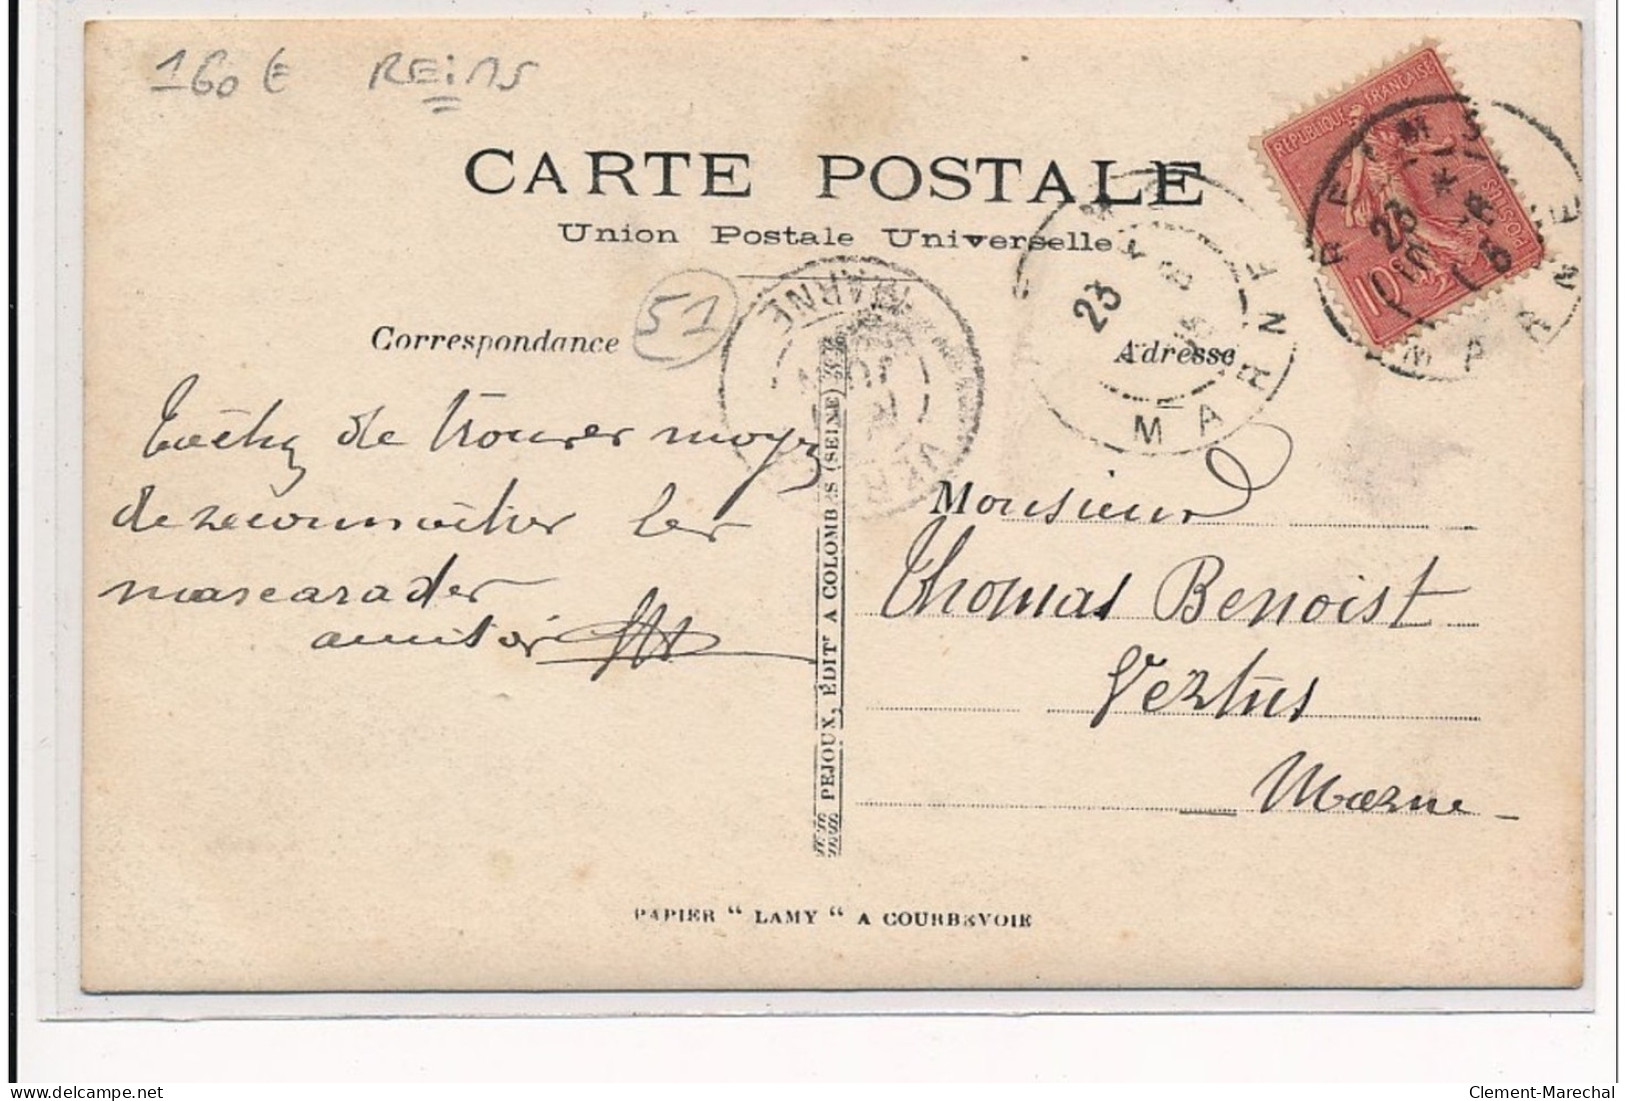 160 € REiMS
CARTE POSTALE
Union Postale Universelle
RÉPUBLIQUE FRANÇAISE
POSTES
10
REIMS
23
MARNE
23
MARNE
MARNE
VER
51
Correspondance
Adresse
Tachez de trouver moyz
de reconnaître les
mascarades
amitié
Monsieur
Thomas Benoist
Vertus
Marne
PEJOUX, ÉDITr A COLOMBES (SEINE)
PAPIER “ LAMY “ A COURBEVOIE
Clement-Marechal
delcampe.net